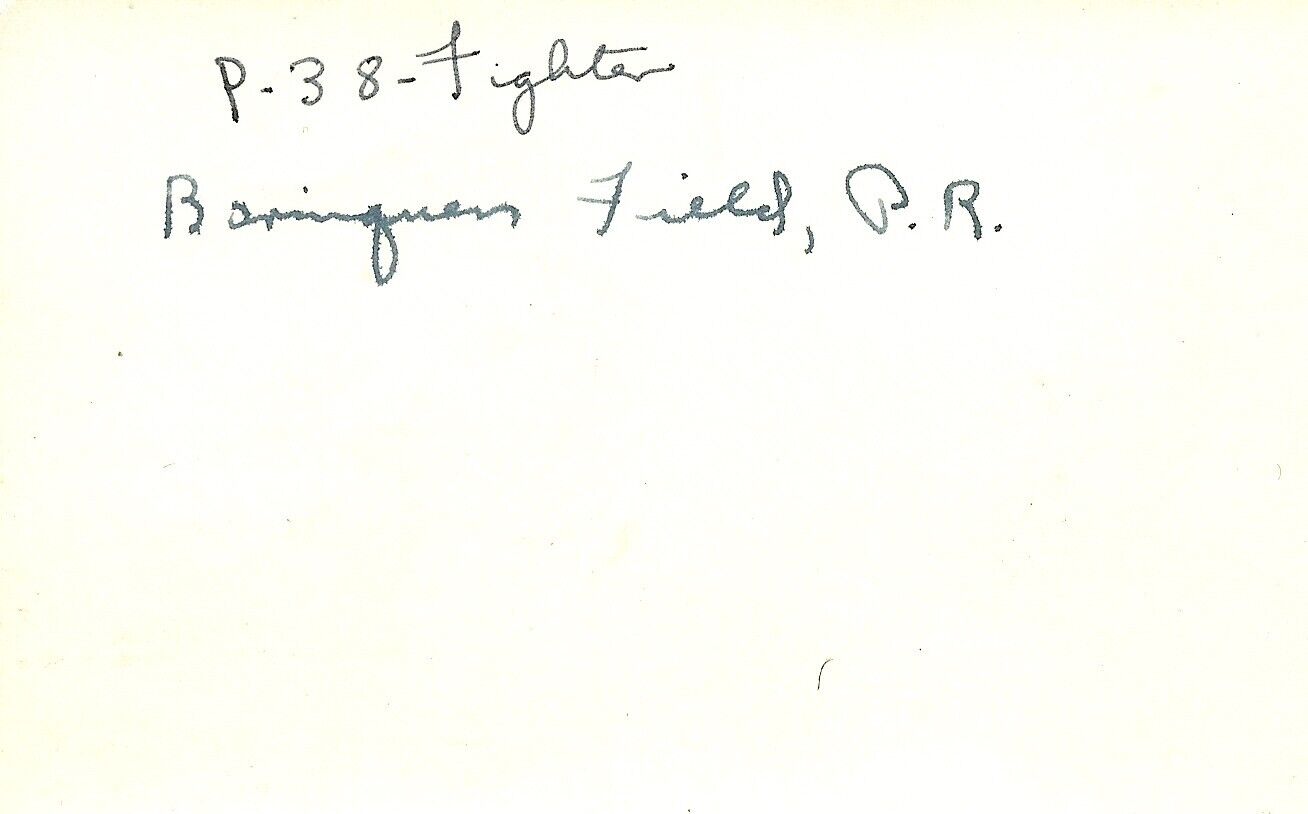 P-38-Fighter
Borinquen Field, P.R.